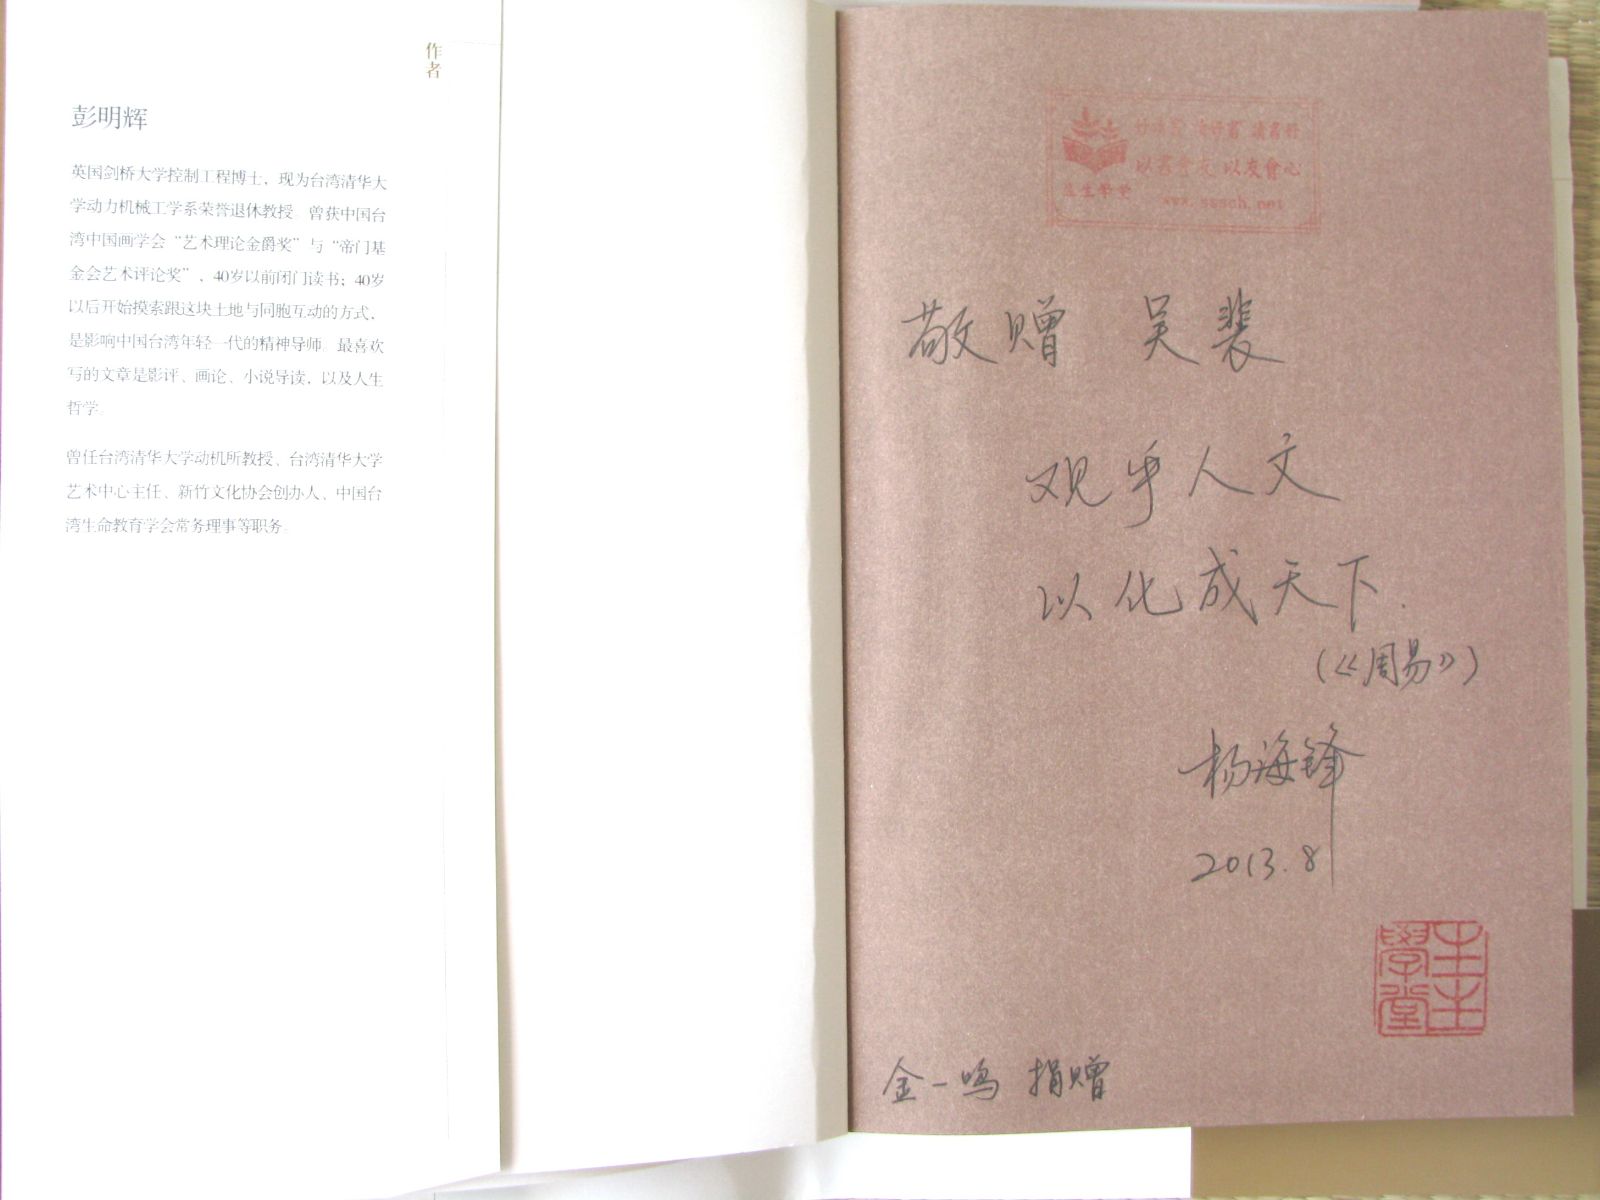 作者
彭明辉
英国剑桥大学控制工程博士，现为台湾清华大
学动力机械工学系荣誉退休教授。曾获中国台
湾中国画学会“艺术理论金爵奖”与“帝门基
金会艺术评论奖”，40岁以前闭门读书；40岁
以后开始摸索跟这块土地与同胞互动的方式，
是影响中国台湾年轻一代的精神导师。最喜欢
写的文章是影评、画论、小说导读，以及人生
哲学。
曾任台湾清华大学动机所教授、台湾清华大学
艺术中心主任、新竹文化协会创办人、中国台
湾生命教育学会常务理事等职务。
好读书 读好
以書會友 以友會心
生生學堂
www.sssch.net
敬赠 吴裴
观乎人文
以化成天下.
(《周易》)
杨海锋
2013.8
生生
學堂
金一鸣 捐赠